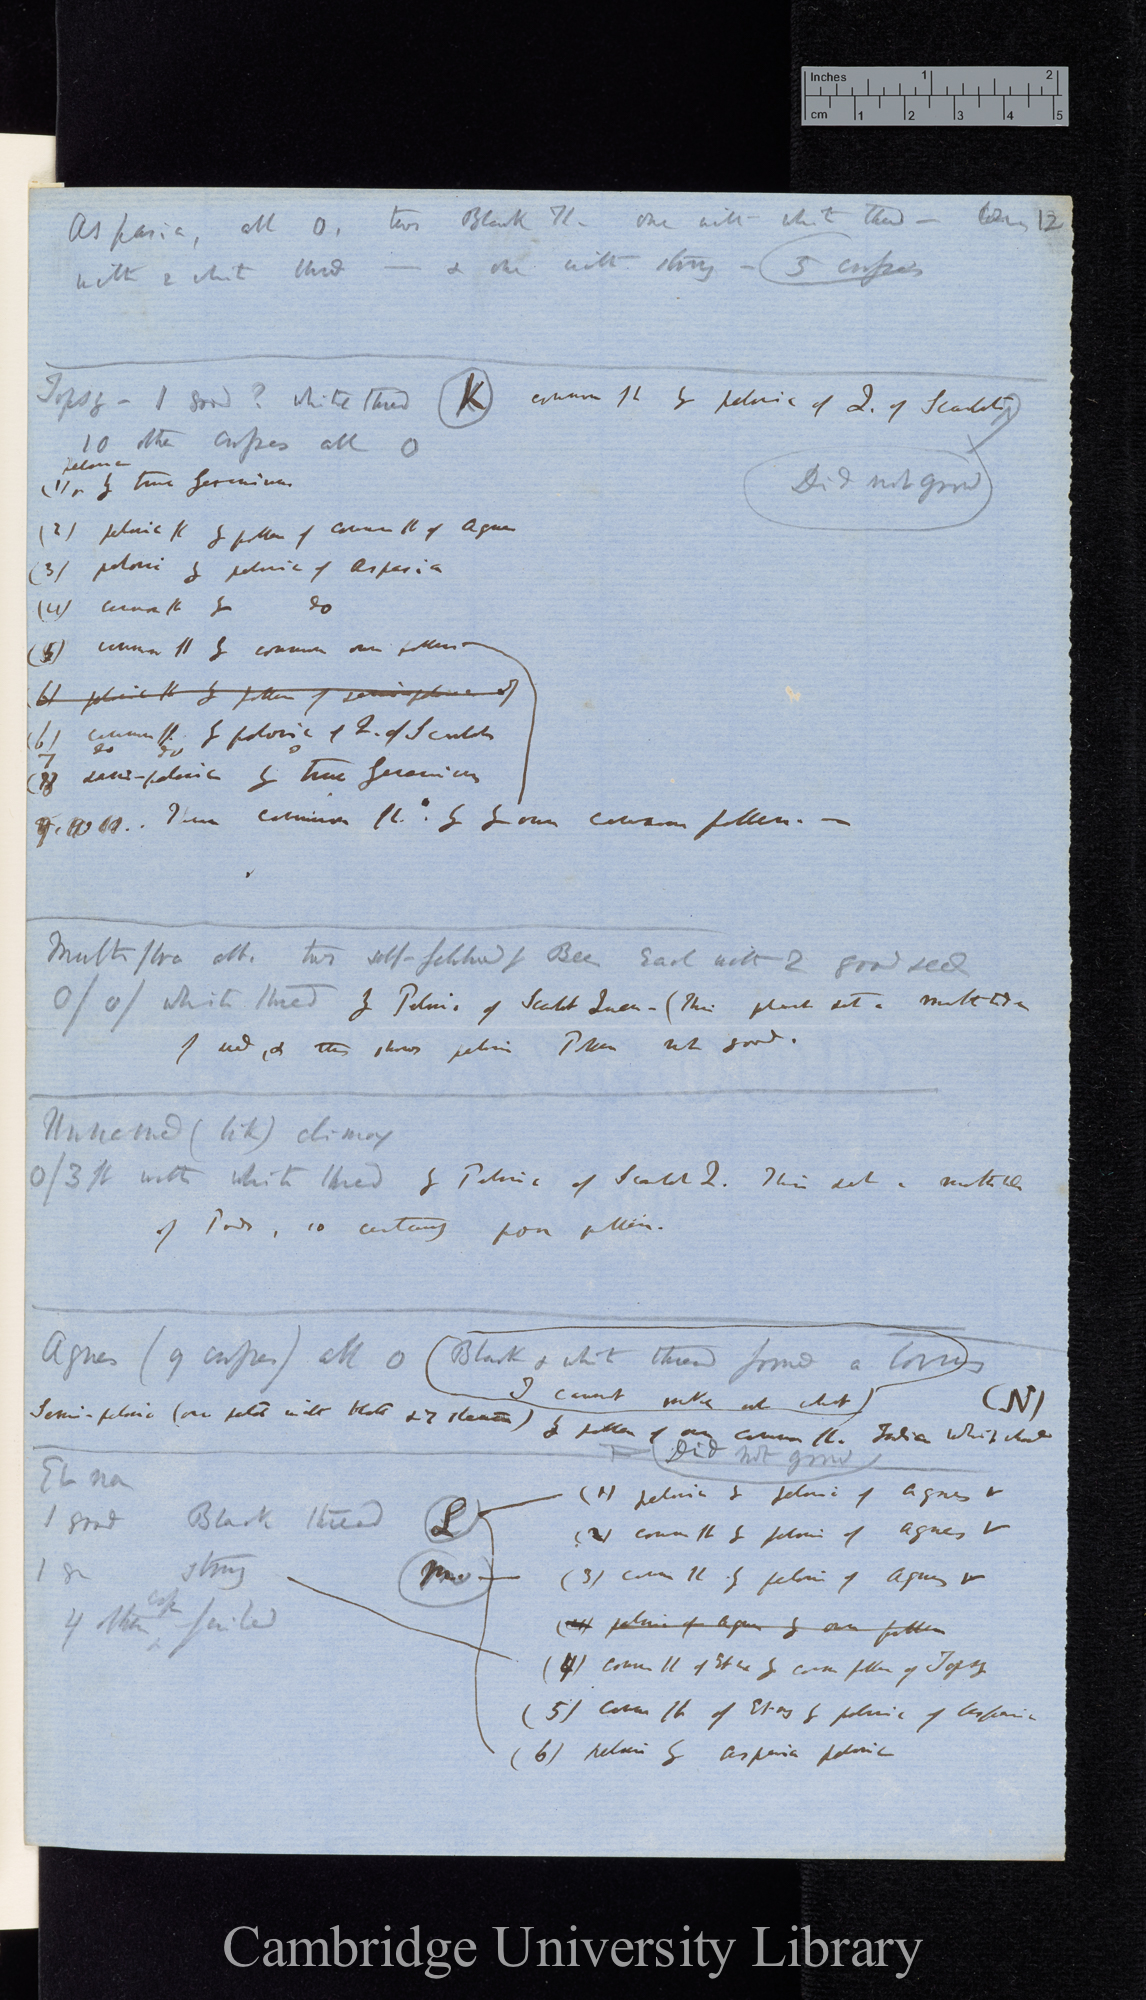 Inches 1 2
cm 1 2 3 4 5
Aspasia, all 0, two Black Th. one with white thread — 12
with 2 white thread — & one with string — 5 crosses
Topsy – 1 good? white thread K common fl by peloric of Q. of Scarlets
10 other crosses all 0
peloria
(1) by true Geranium
Did not grow
(2) peloric fl by pollen of common fl of Agnes
(3) peloric by peloric of Aspasia
(4) common fl by do
(5) common fl by common own pollen
(6) peloric fl by pollen of
(6) common fl. by peloric of Q. of Scarlets
7 do do
(8) semi-peloric by true Geranium
Then common fl. by own common pollen. —
Multiflora all. two self-fertilised by Bee each with 2 good seed
0/ 0/ white thread by Peloric of Scarlet Queen – (This plant set a multitude
of seed, & this shows peloric Pollen not good.
Unnamed (like) climax
0/3 fl with white thread by Peloric of Scarlet Q. This set a multitude
of Pods, so certainly poor pollen.
Agnes (9 crosses) all 0 (Black & white thread formed a
I cannot make out what)
(N)
Semi-peloric (one petal with blotch & 7 stamens) by pollen of own common fl. Indian White
Did not grow
Etna
1 good Black thread L
1 do string M
4 other failed
(1) peloric by peloric of Agnes
(2) common fl by peloric of Agnes
(3) common fl by peloric of Agnes
(4) peloric of Agnes by own pollen
(4) common fl of Etna by common pollen of Topsy
(5) common fl of Etna by peloric of Aspasia
(6) peloric by Aspasia peloric
Cambridge University Library